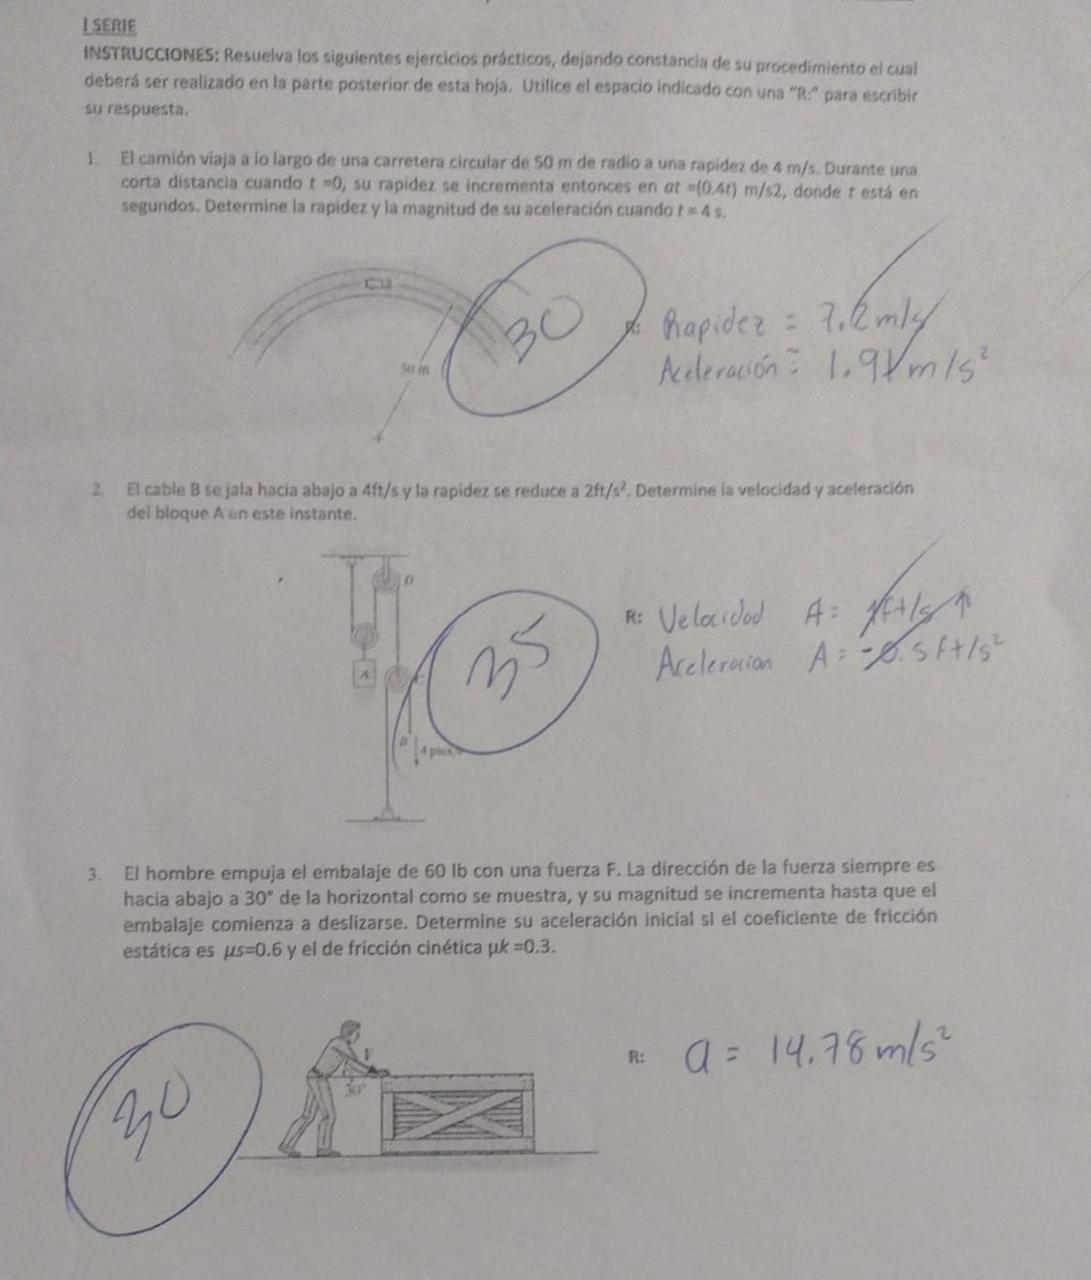 I SERIE
INSTRUCCIONES: Resuelva los siguientes ejercicios prácticos, dejando constancia de su procedimiento el cual
deberá ser realizado en la parte posterior de esta hoja. Utilice el espacio indicado con una "R:" para escribir
su respuesta.
1. El camión viaja a lo largo de una carretera circular de 50 m de radio a una rapidez de 4 m/s. Durante una
corta distancia cuando t =0, su rapidez se incrementa entonces en at =(0.4t) m/s2, donde t está en
segundos. Determine la rapidez y la magnitud de su aceleración cuando t = 4 s.
30
R: Rapidez = 7.2 m/s
50 m
Aceleración = 1.91 m/s²
2. El cable B se jala hacia abajo a 4ft/s y la rapidez se reduce a 2ft/s². Determine la velocidad y aceleración
del bloque A en este instante.
D
R: Velocidad A = 1ft/s ↑
35
Aceleracion A = -0.5 ft/s²
A
C
B
4 pies/s
3. El hombre empuja el embalaje de 60 lb con una fuerza F. La dirección de la fuerza siempre es
hacia abajo a 30° de la horizontal como se muestra, y su magnitud se incrementa hasta que el
embalaje comienza a deslizarse. Determine su aceleración inicial si el coeficiente de fricción
estática es μs=0.6 y el de fricción cinética μk =0.3.
F
R: a = 14.78 m/s²
30°
30